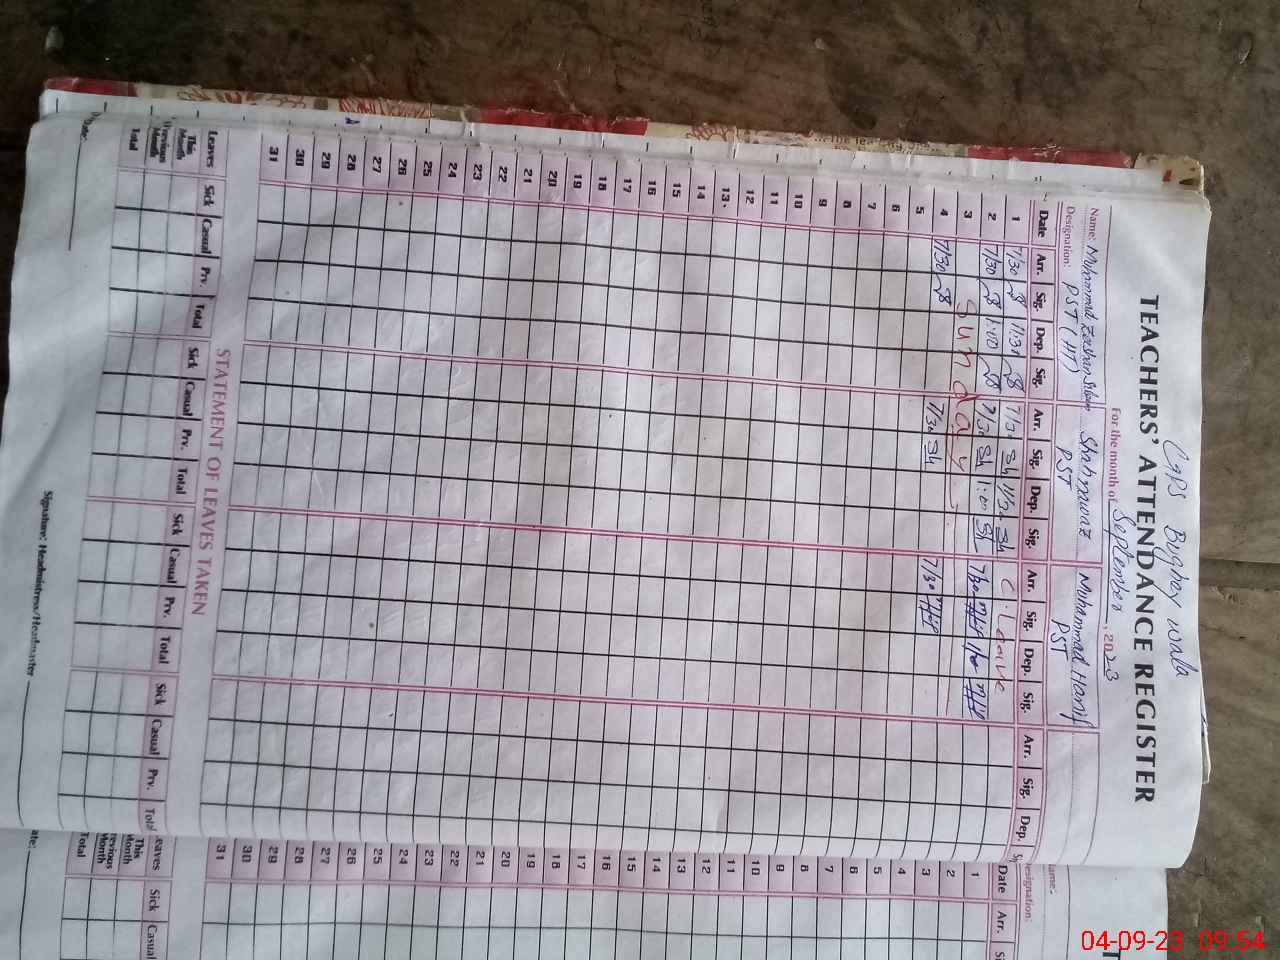 GPS Bugher wala
TEACHERS' ATTENDANCE REGISTER
For the month of September, 2023
Name: Muhammad Shahnawaz Muhammad Hanif
Designation: PST (HT) PST PST
Date Arr. Sig. Dep. Sig. Arr. Sig. Dep. Sig. Arr. Sig. Dep. Sig. Arr. Sig. Dep.
1 7/30 11:30 7/30 11/30 Sh C. Leave
2 7/30 1:00 7/30 Sh 1:00 Sh 7/30 1/00
3 Sunday
4 7/30 7/30 Sh 7/30
5
6
7
8
9
10
11
12
13
14
15
16
17
18
19
20
21
22
23
24
25
26
27
28
29
30
31
STATEMENT OF LEAVES TAKEN
Leaves Sick Casual Prv. Total Sick Casual Prv. Total Sick Casual Prv. Total Sick Casual Prv. Total
This Month
Previous Month
Total
Date: Signature: Headmistress/Headmaster
Designation:
Date Arr.
1
2
3
4
5
6
7
8
9
10
11
12
13
14
15
16
17
18
19
20
21
22
23
24
25
26
27
28
29
30
31
Leaves Sick Casual
This Month
Previous Month
Total
04-09-23 09:54